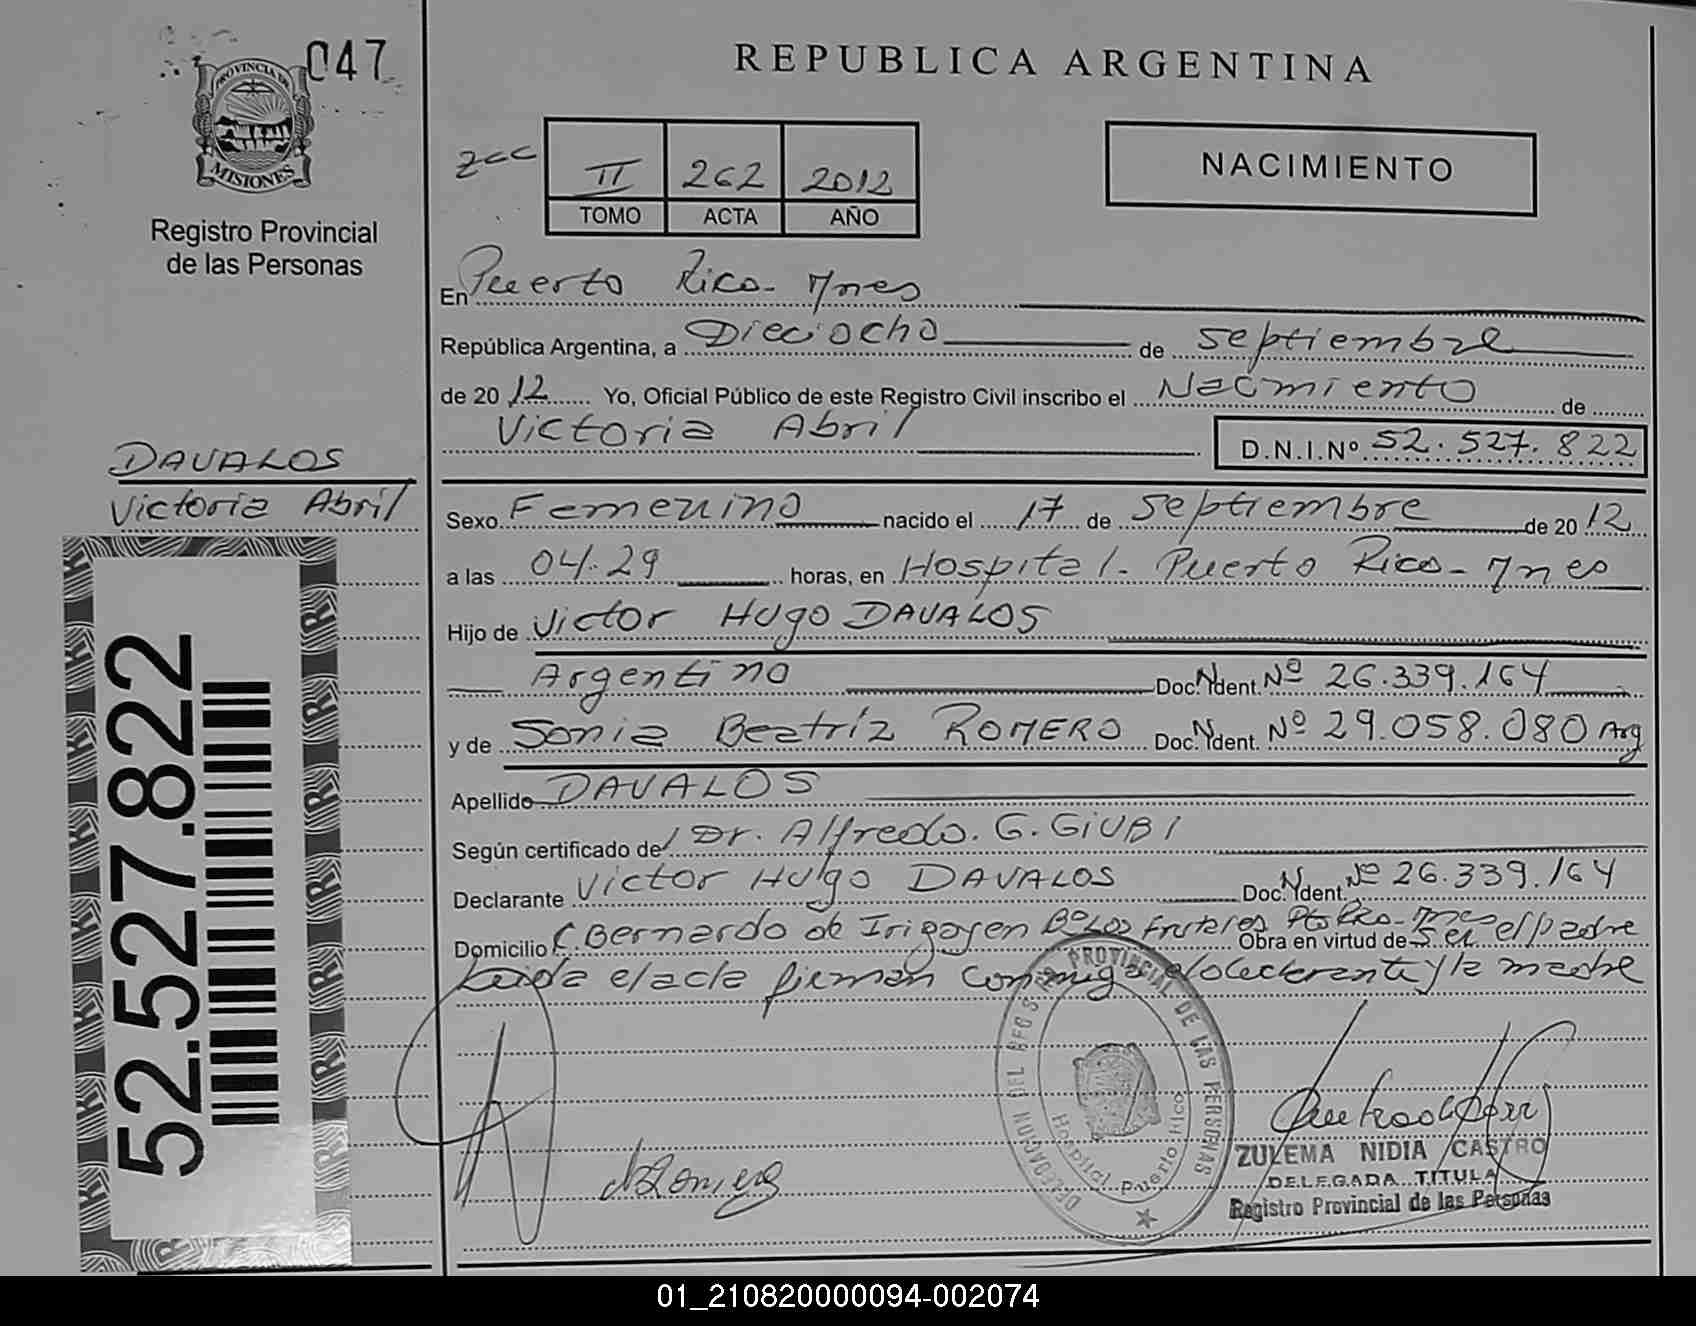 047
PROVINCIA DE
MISIONES
Registro Provincial
de las Personas
REPUBLICA ARGENTINA
zcc II 262 2012
TOMO ACTA AÑO
NACIMIENTO
En Puerto Rico - Mnes
República Argentina, a Dieciocho de septiembre
de 2012 Yo, Oficial Público de este Registro Civil inscribo el Nacimiento de
Victoria Abril D.N.I.Nº 52.527.822
DAVALOS
Victoria Abril
Sexo Femenino nacido el 17 de septiembre de 2012
a las 04.29 horas, en Hospital - Puerto Rico - Mnes
Hijo de Victor Hugo DAVALOS
Argentino Doc. Ident. Nº 26.339.164
y de Sonia Beatríz ROMERO Doc. Ident. Nº 29.058.080 Arg
Apellido DAVALOS
Según certificado de Dr. Alfredo. G. GIUBI
Declarante Victor Hugo DAVALOS Doc. Ident. Nº 26.339.164
Domicilio C. Bernardo de Irigoyen Bº Los Frutales Pto Rco - Mnes Obra en virtud de ser el padre
Leida el acta firman conmigo el declarante y la madre
52.527.822
DELEGACION DEL REG PROVINCIAL DE LAS PERSONAS
Hospital Puerto Rico
ZULEMA NIDIA CASTRO
DELEGADA TITULA
Registro Provincial de las Personas
01_210820000094-002074